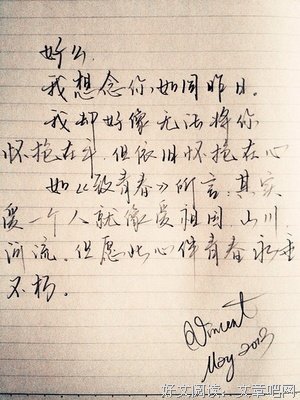 好么
我想念你,如同昨日。
我却好像无法将你
怀抱在手,但依旧怀抱在心
如《致青春》所言,其实
爱一个人就像爱祖国、山川
河流。但愿此心伴青春永垂
不朽。
Vincent
May 2013
好文阅读:文章吧网